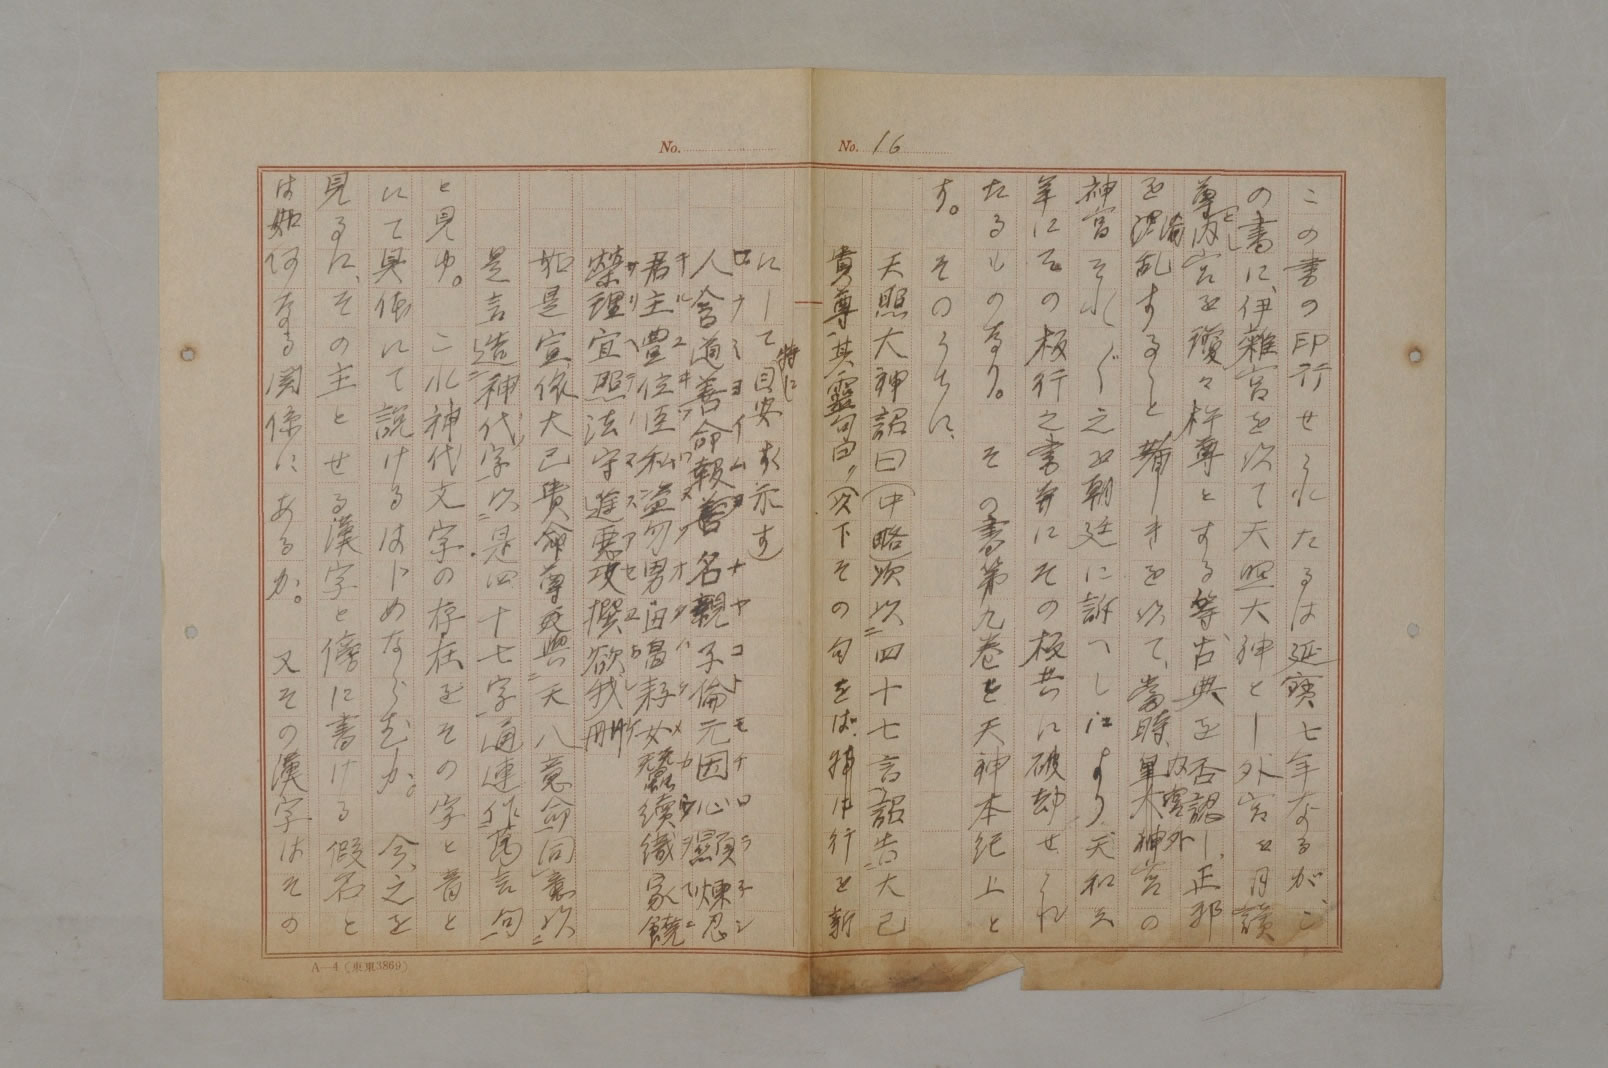 No. 16
この書の印行せられたるは延寳七年なるが、こ
の書に、伊雜宮を以て天照大神とし外宮を月讀
尊とし内宮を瓊々杵尊とする等、古典を否認し、正邪
を混淆乱すること著しきを以て、當時、内宮外宮の
神宮それ〲之を朝廷に訴へしにより、天和元
年にその板行之書并にその板共に破却せられ
たるものなり。その書第九巻を天神本紀上と
す。そのうちに、
天照大神詔曰(中略)次以四十七言詔告大己
貴尊、其靈句白、(以下その句をば、行を新
にして、特に目安す示す)
人含道善命報名親子倫元因心顯煉忍
君主豊位臣私盗勿男田畠耘女蠶續織家饒
榮理宜照法守進悪攻撰欲我刪
如是宣依大已貴命尊與天八意命同意以
是言造神代字以是四十七字通連作萬言句
と見ゆ。これ神代文字の存在をその字と音と
にて具体にて説けるはじめならむか。今、之を
見るに、その主とせる漢字と傍に書ける假名と
は如何なる関係にあるか。又その漢字はその
No.
A—4(東東3869)